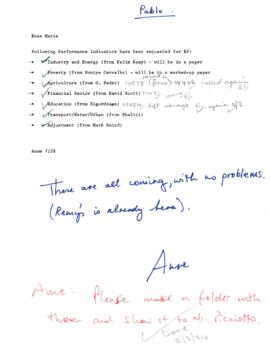 Pablo:
Rose Marie
Following Performance Indicators have been requested for BP:
Industry and Energy (from Felix Remy) - will be in a paper
Poverty (from Soniya Carvalho) - will be in a marked-up paper
Agriculture (from G. Feder) called again
Financial Sector (from David Scott)
Education (from Sigurdsson) left message
Transport/Water/Urban (from Shalizi)
Adjustment (from Mark Baird)
Anne 7/28
These are all coming, with no problems.
(Remy's is already here).
Anne
Anne: Please make a folder with
those and show it to Mr. Picciotto.
Done